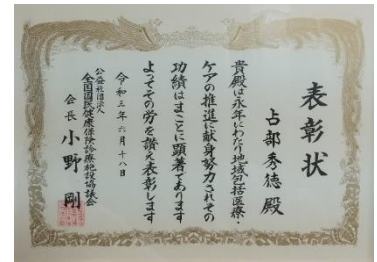 表彰状
占部秀徳 殿
貴殿は永年にわたり地域包括医療・
ケアの推進に献身努力されその
功績はまことに顕著であります
よってその労を讃え表彰します
令和三年六月十八日
公益社団法人
全国国民健康保険診療施設協議会
会長 小野 剛